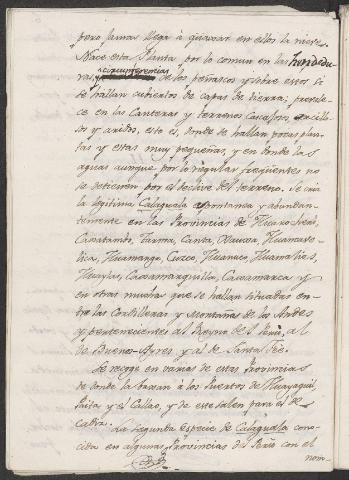 pero jamas llega á quaxar en ellos la nieve.
"Nace esta Planta por lo comun en las hondedu-
ras, y circunferencias de los peñascos y sobre estos si
se hallan cubiertos de capas de tierra; prende-
se en las Canteras y terrenos cascajosos, arcillo-
sos y aridos, esto es, donde se hallan pocas plan-
tas y estas muy pequeñas, y en donde las
aguas aunque por lo regular freqüentes no
se detienen por el declive del terreno. Se cria
la legitima Calaguala espontanea y abundan-
temente en las Provincias de Huarocheri,
Caxatambo, Tarma, Canta, Xauxa, Huancave-
lica, Huamanga, Cuzco, Huanuco, Huamalies,
Huaylas, Caxamarquilla, Caxamarca y
en otras muchas que se hallan situadas en-
tre las Cordilleras y Montañas de los Andes
y pertenecientes al Reyno de el Perú, al
de Buenos-Ayres y al de Santa Fée.
Se recoge en varias de estas Provincias
de donde la traen á los Puertos de Huayaquil,
Paita y el Callao, y de este salen para el de
Cadiz.
La segunda Especie de Calaguala cono-
cida en algunas Provincias del Perú con el
nom-